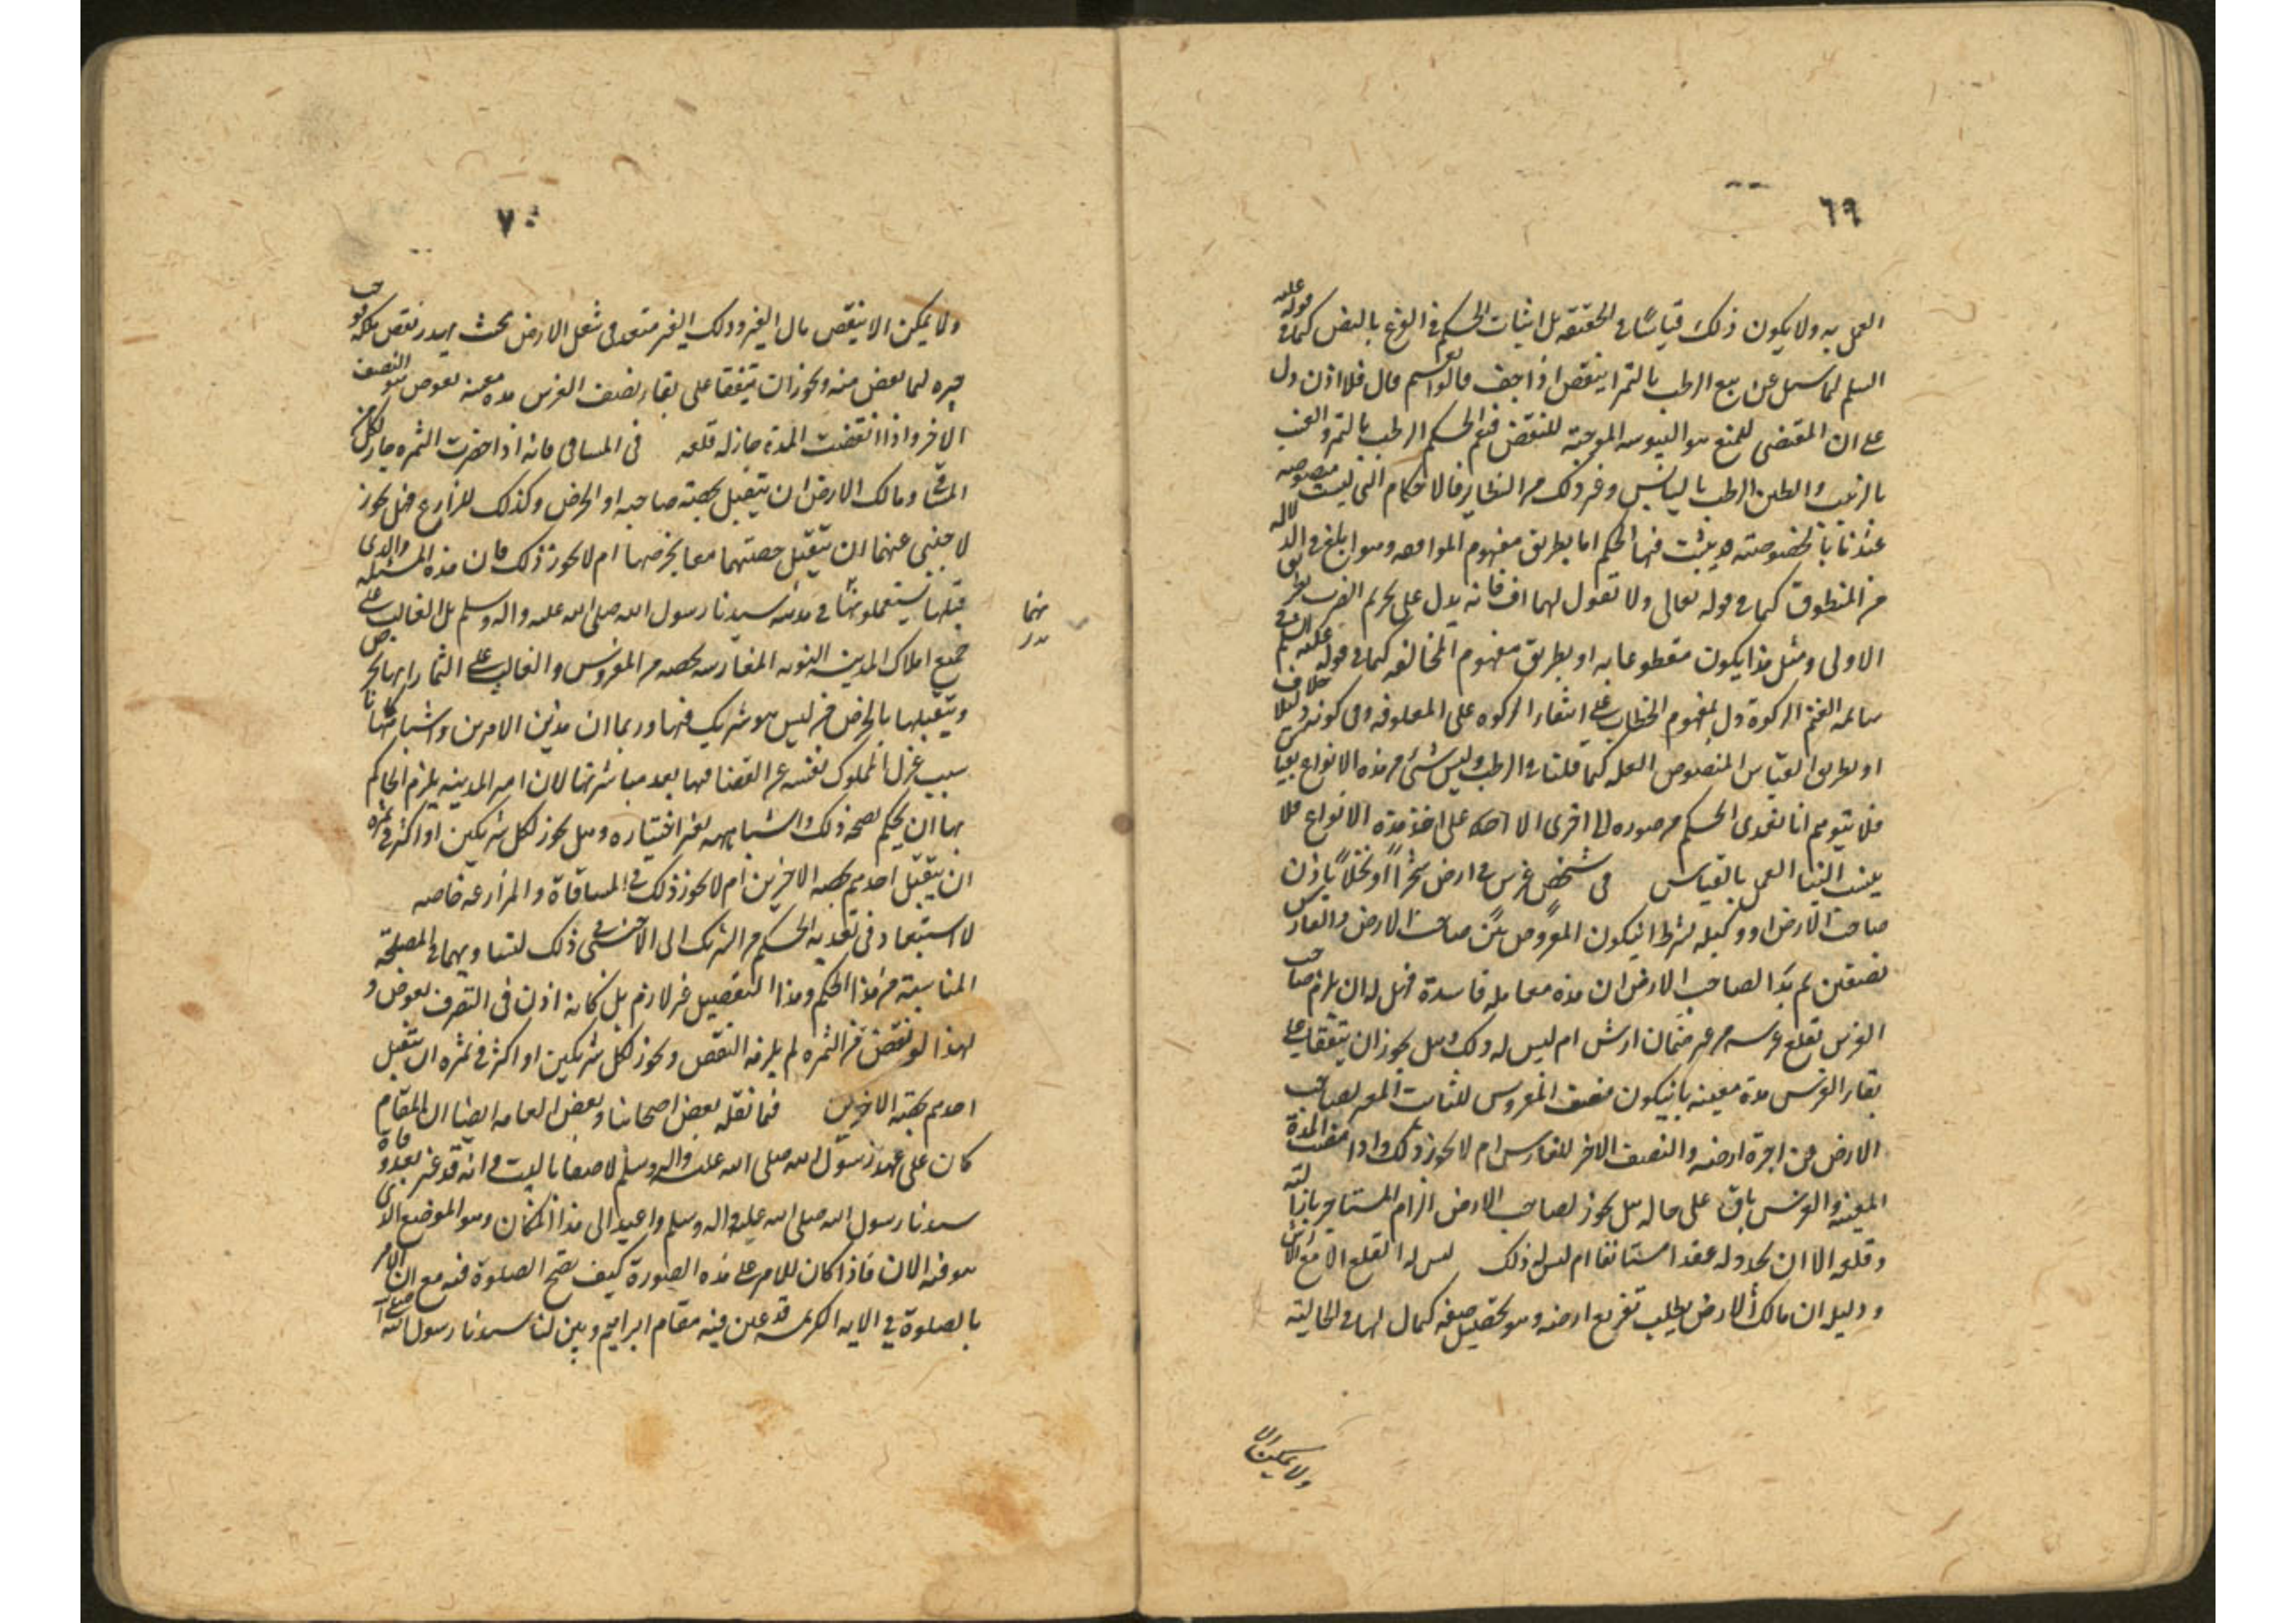 ٦٩
العمل به ولا يكون ذلك قياسًا في الحقيقة بل اثبات الحكم في الفرع بالنص كما في قوله عليه
السلم لما سئل عن بيع الرطب بالتمر اينقص اذا جف قالوا نعم قال فلا اذن دل
على ان المقتضى للمنع هو اليبوسه الموجبة للنقص فيعم الحكم الرطب بالتمر والعنب
بالزبيب والطين الرطب باليابس وغير ذلك من النظاير فالاحكام التي ليست منصوصه
عندنا بالخصوصيه يثبت فيها الحكم اما بطريق مفهوم الموافقه وهو ابلغ في الدلاله
من المنطوق كما في قوله تعالى ولا تقول لهما اف فانه يدل على تحريم الضرب بطريق
الاولى ومثل هذا يكون مقطوعا به او بطريق مفهوم المخالفه كما في قوله عليه السلم في
سائمه الغنم الزكوة دل بمفهوم الخطاب على انتفاء الزكوه على المعلوفه وفي كونه دليلا خلاف
او بطريق القياس المنصوص العله كما قلنا في الرطب وليس شئ من هذه الانواع بقياس
فلا يتوهم انا نعدى الحكم من صوره الى اخرى الا على احد هذه الانواع فلا
ينسب الينا العمل بالقياس في شخص غرس في ارض شجرًا او نخلًا باذن
صاحب الارض او وكيله بشرط ان يكون المغروس بين صاحب الارض والغارس
نصفين ثم بدا لصاحب الارض ان هذه معامله فاسدة فهل له ان يلزم صاحب
الغرس بقلع غرسه من غير ضمان ارش ام ليس له ذلك وهل يجوز ان يتفقا على
بقاء الغرس مدة معينه بان يكون نصف المغروس للثابت المعين لصاحب
الارض من اجرة ارضه والنصف الاخر للغارس ام لا يجوز ذلك واذا انقضت المدة
المعينه والغرس باق على حاله هل يجوز لصاحب الارض الزام المستاجر بازالته
وقلعه الا ان يجدد له عقدا مستانفا ام ليس له ذلك ليس له القلع الا مع الارش
ودليله ان مالك الارض يطلب تفريغ ارضه وهو تحصيل صفه كمال لها في الحاليه
ولا يمكن الا
٧٠
ولا يمكن الا بنقص مال الغير وذلك الغير متعد في شغل الارض بحيث يهدر نقص ملكه فوجب
جبره لما نقص منه ويجوز ان يتفقا على بقاء نصف الغرس مده معينه بعوض هو النصف
الاخر واذا انقضت المدة جاز له قلعه في المساقي فانه اذا خرصت الثمره جاز لكل من
المساقي ومالك الارض ان يتقبل بحصة صاحبه او الخرص وكذلك المزارع فهل يجوز
لاجنبي عنهما ان يتقبل حصتهما معا بخرصها ام لا يجوز ذلك فان هذه المسئله والذي
قبلها يستعملونها في مدينه سيدنا رسول الله صلى الله عليه واله وسلم بل الغالب على
جميع املاك المدينه النبويه المغارسه بحصه من المغروس والغالب على الثمار انها تخرص
ويتقبلها بالخرص من ليس هو شريك فيها وربما ان هذين الامرين واشباهها كانا
سبب عزل المملوك نفسه عن القضا فيها بعد مباشرتها لان امير المدينه يلزم الحاكم
بها ان يحكم بصحه ذلك واشباهه بغير اختياره وهل يجوز لكل شريكين او اكثر في ثمره
ان يتقبل احدهم بحصه الاخرين ام لا يجوز ذلك في المساقاة والمزارعه خاصه
لا استبعاد في تعديه الحكم من الشريك الى الاجنبي في ذلك لتساويهما في المصلحة
المناسبة من هذا الحكم وهذا التفصيل غير لازم بل كانه اذن في التصرف بعوض و
لهذا لو نقص من الثمره لم يلزمه النقص ويجوز لكل شريكين او اكثر في ثمره ان يتقبل
احدهم بحصة الاخرين فيما نقله بعض اصحابنا وبعض العامه ايضا ان المقام
كان على عهد رسول الله صلى الله عليه واله وسلم لاصقا بالبيت وانه قد غير بعد وفاة
سيدنا رسول الله صلى الله عليه واله وسلم واعيد الى هذا المكان وهو الموضع الذي
هو فيه الان فاذا كان الامر على هذه الصورة كيف تصح الصلوة فيه مع ان الامر
بالصلوة في الايه الكريمه قد عين فيه مقام ابراهيم وبين لنا سيدنا رسول الله صلى الله
منهما